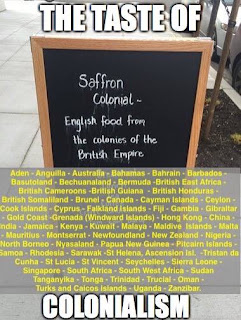 THE TASTE OF
Saffron
Colonial ~
English food from
the colonies of the
British Empire
Aden - Anguilla - Australia - Bahamas - Bahrain - Barbados -
Basutoland - Bechuanaland - Bermuda -British East Africa -
British Cameroons -British Guiana - British Honduras -
British Somaliland - Brunei - Canada - Cayman Islands - Ceylon -
Cook Islands - Cyprus - Falkland Islands - Fiji - Gambia - Gibraltar
- Gold Coast -Grenada (Windward Islands) - Hong Kong - China -
India - Jamaica - Kenya - Kuwait - Malaya - Maldive Islands - Malta
- Mauritius - Montserrat - Newfoundland - New Zealand - Nigeria -
North Borneo - Nyasaland - Papua New Guinea - Pitcairn Islands -
Samoa - Rhodesia - Sarawak - St Helena, Ascension Isl. - Tristan da
Cunha - St Lucia - St Vincent - Seychelles - Sierra Leone -
Singapore - South Africa - South West Africa - Sudan
Tanganyika - Tonga - Trinidad - Trucial - Oman -
Turks and Caicos Islands - Uganda - Zanzibar.
COLONIALISM